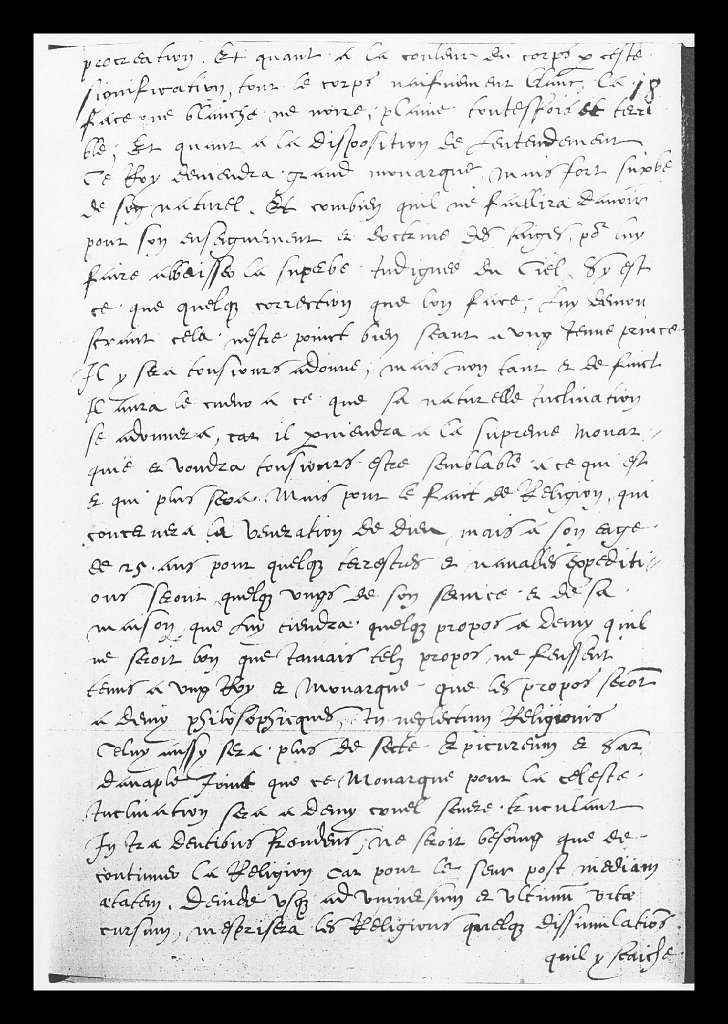 procreation. Et quant a la couleur du corps p ceste
signification, tout le corps naifvement blanc, la
18
face que blanche ne noire, plaine toutesfois et terri
ble; Et quant a la disposition de Lentendement
Ce Roy deviendra grand monarque, mais fort supbe
de soy naturel. Et combien quil ne faillira davoir
pour son enseignement et doctrine des saiges, po luy
faire abaisser la supbe Indignee du Ciel. Sy est
ce que quelq correction que lon face, Luy demon
strant cela nestre point bien seant a ung Jeune prince
Il y sera tousiours adonne, mais non tant et de faict
Il aura le cueur a ce que sa naturelle Inclination
se adonnera, car il pviendra a la supreme Monar-
quie et vondra tousiours estre semblable a ce qui est
et qui plus sera. Mais pour le faict de Religion, qui
concernera la veneration de dieu, mais a son eage
de 25 ans pour quelq terrestres et navalles expediti-
ons seront quelq ungs de son service et de sa
maison, que luy tiendra quelq propos a demy quil
ne seroit bon que Jamais telz propos ne feussent
tenus a ung Roy et Monarque que les propos serot
a demy philosophicques, In neglectum Religionis
Celuy aussy sera plus de secte Epicureum et Sar
danaple Joint que ce Monarque pour la celeste
Inclination sera a demy cruel semre truculant
In Ira dentibus frendens, ne seroit besoing que de
continuer la Religion Car pour le seur post mediam
aetatem. Deinde usq ad universum et ultimum vitae
cursum, mesprisera les Religions quelq dissimulatios
quil y saiche